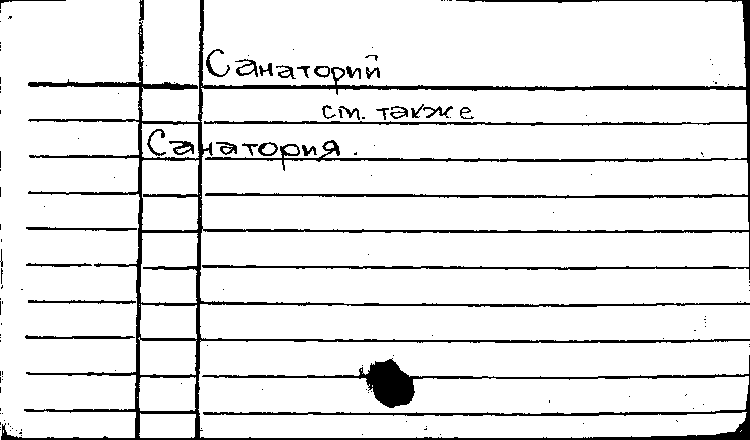 Санаторий
см. также
Санатория.